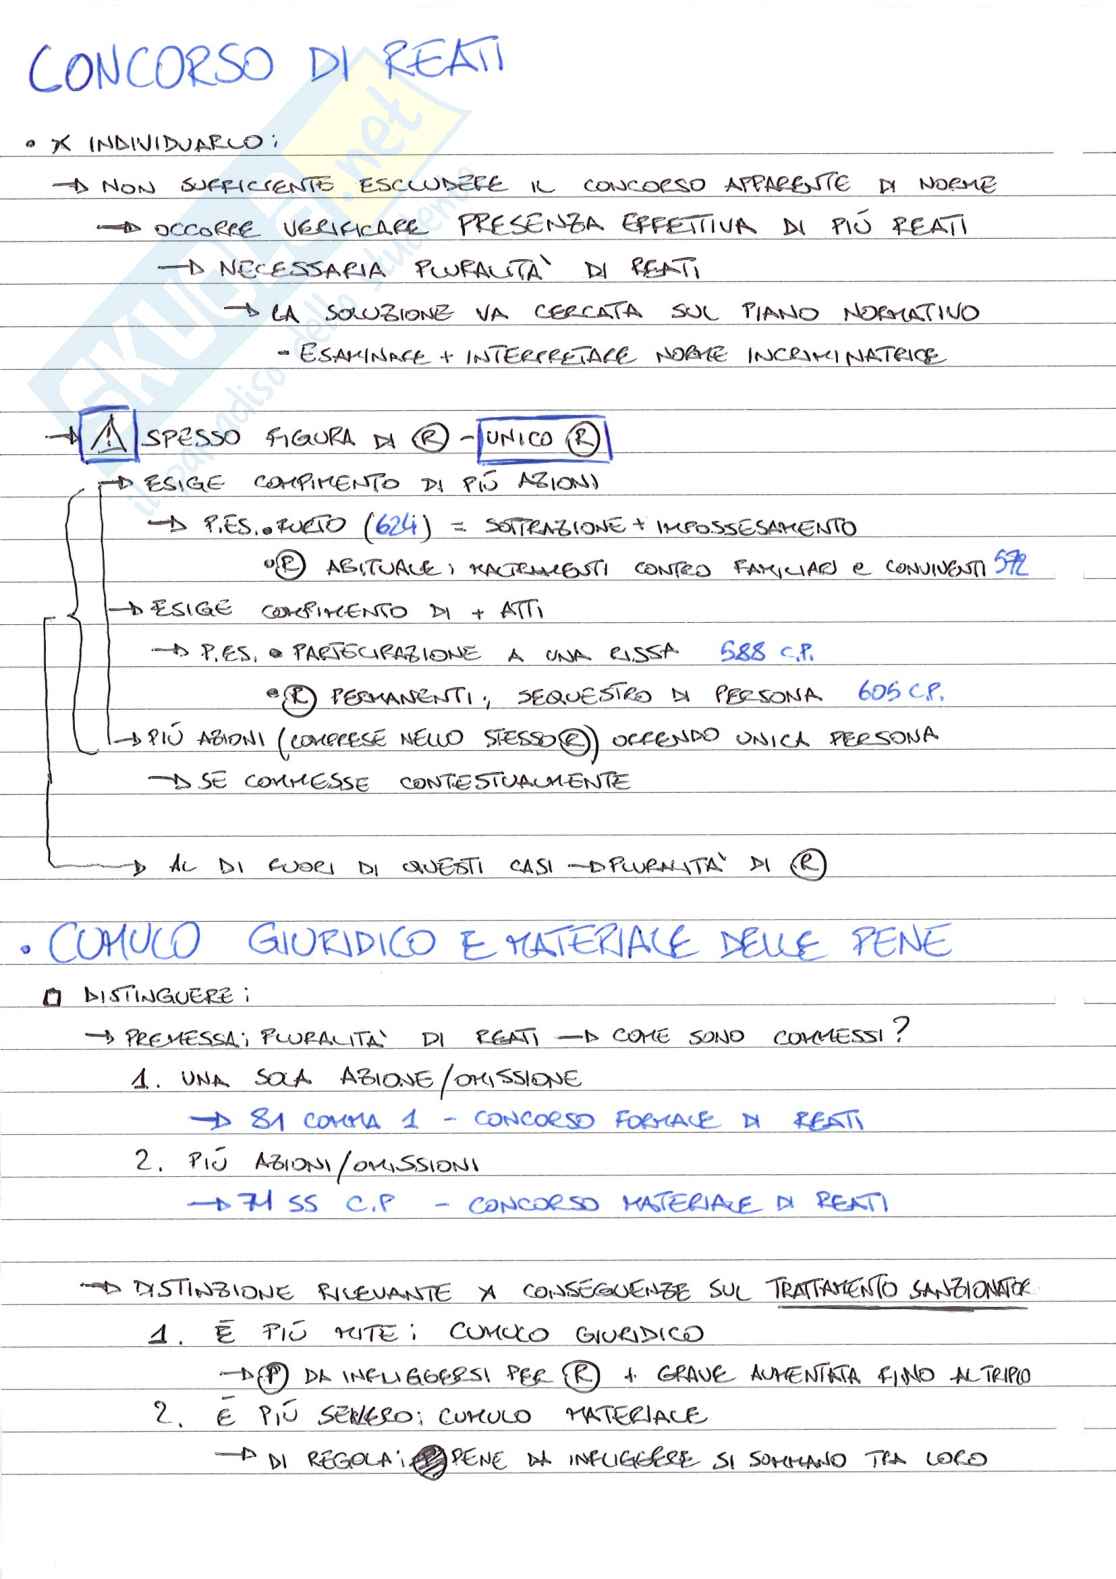 CONCORSO DI REATI
• X INDIVIDUARLO:
→ NON SUFFICIENTE ESCLUDERE IL CONCORSO APPARENTE DI NORME
→ OCCORRE VERIFICARE PRESENZA EFFETTIVA DI PIÙ REATI
→ NECESSARIA PLURALITA' DI REATI
→ LA SOLUZIONE VA CERCATA SUL PIANO NORMATIVO
- ESAMINARE + INTERPRETARE NORME INCRIMINATRICE
→ ⚠ SPESSO FIGURA DI Ⓡ - UNICO Ⓡ
→ ESIGE COMPIMENTO DI PIÙ AZIONI
→ P.ES. • FURTO (624) = SOTTRAZIONE + IMPOSSESAMENTO
• Ⓡ ABITUALE: MALTRAMENTI CONTRO FAMILIARI e CONVIVENTI 572
→ ESIGE COMPIMENTO DI + ATTI
→ P.ES. • PARTECIPAZIONE A UNA RISSA 588 C.P.
• Ⓡ PERMANENTI: SEQUESTRO DI PERSONA 605 C.P.
→ PIÙ AZIONI (COMPRESE NELLO STESSO Ⓡ) OFFENDO UNICA PERSONA
→ SE COMMESSE CONTESTUALMENTE
→ AL DI FUORI DI QUESTI CASI → PLURALITA' DI Ⓡ
• CUMULO GIURIDICO E MATERIALE DELLE PENE
□ DISTINGUERE:
→ PREMESSA: PLURALITA' DI REATI → COME SONO COMMESSI?
1. UNA SOLA AZIONE/OMISSIONE
→ 81 COMMA 1 - CONCORSO FORMALE DI REATI
2. PIÙ AZIONI/OMISSIONI
→ 71 SS C.P - CONCORSO MATERIALE DI REATI
→ DISTINZIONE RILEVANTE X CONSEGUENZE SUL TRATTAMENTO SANZIONATOR
1. È PIÙ MITE: CUMULO GIURIDICO
→ Ⓟ DA INFLIGGERSI PER Ⓡ + GRAVE AUMENTATA FINO AL TRIPLO
2. È PIÙ SEVERO: CUMULO MATERIALE
→ DI REGOLA: PENE DA INFLIGGERE SI SOMMANO TRA LORO
SKUOLA.net
il paradiso dello studente